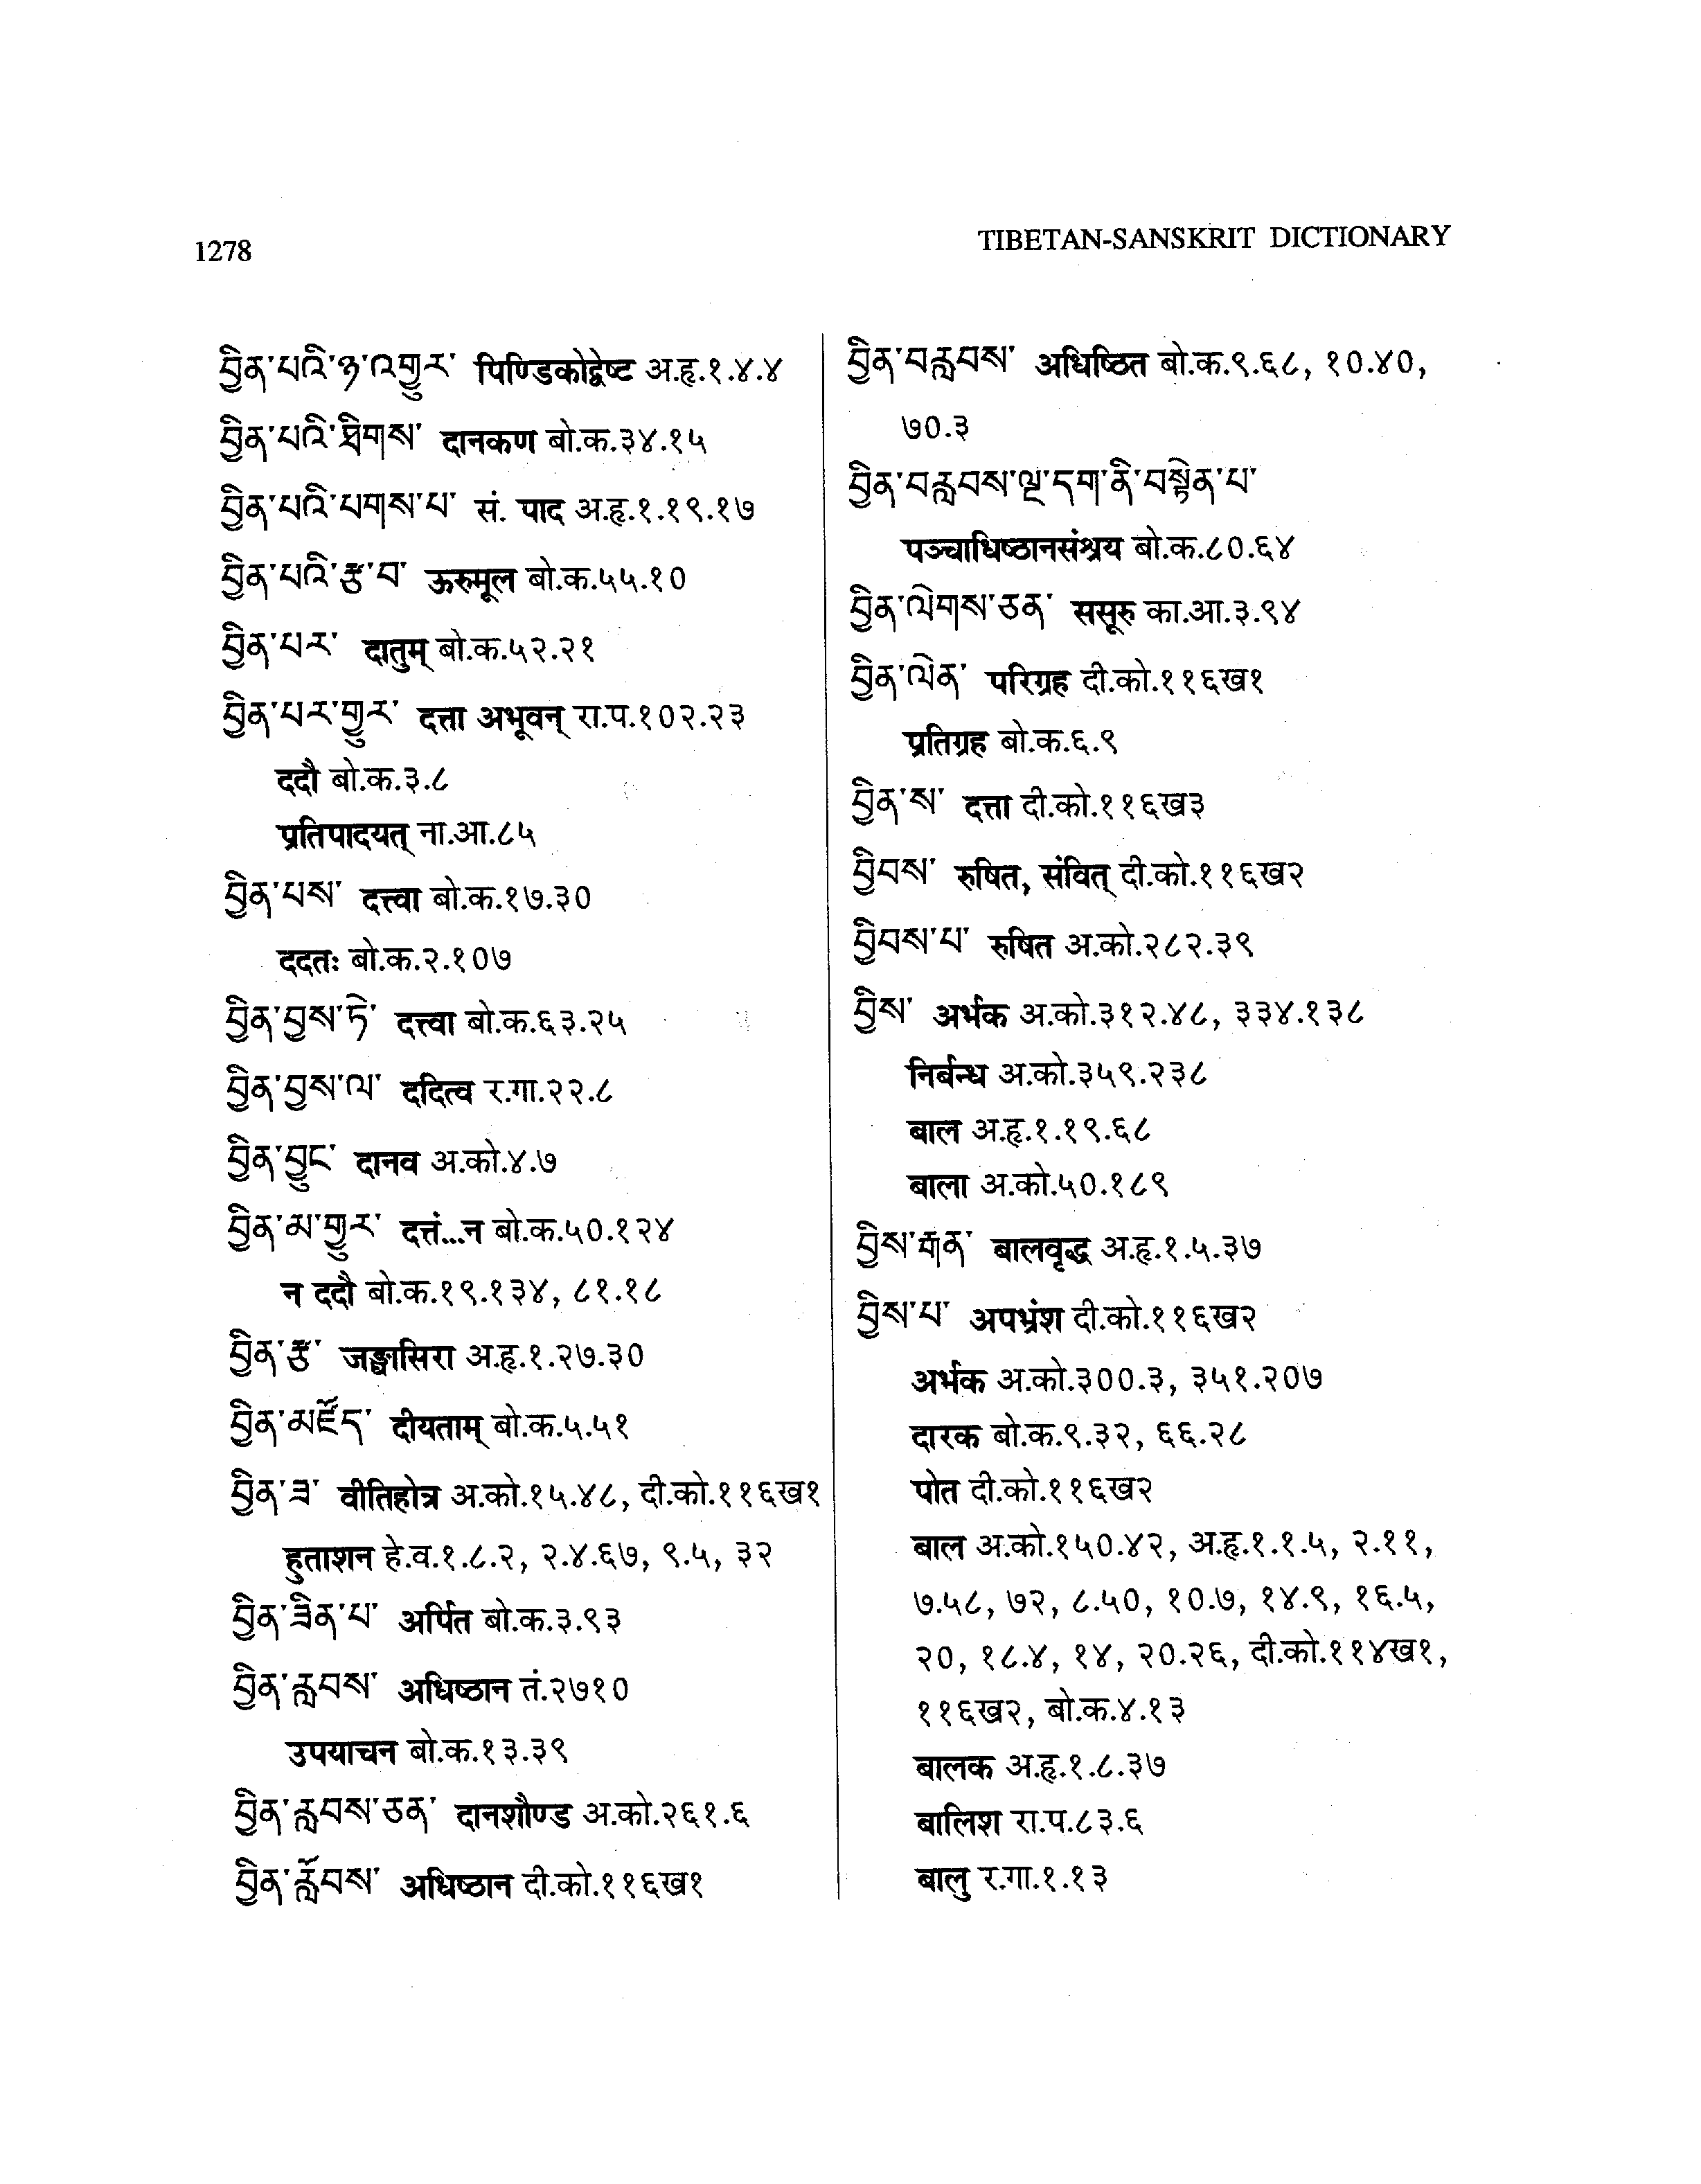 1278
TIBETAN-SANSKRIT DICTIONARY
བྱིན་པའི་ཉ་འགྱུར་ पिण्डिकोद्वेष्ट अ.हृ.१.४.४
བྱིན་པའི་ཐིགས་ दानकण बो.क.३४.१५
བྱིན་པའི་པགས་པ་ सं. पाद अ.हृ.१.१९.१७
བྱིན་པའི་རྩ་བ་ ऊरुमूल बो.क.५५.१०
བྱིན་པར་ दातुम् बो.क.५२.२१
བྱིན་པར་གྱུར་ दत्ता अभूवन् रा.प.१०२.२३
ददौ बो.क.३.८
प्रतिपादयत् ना.आ.८५
བྱིན་པས་ दत्त्वा बो.क.१७.३०
ददतः बो.क.२.१०७
བྱིན་བྱས་ཏེ་ दत्त्वा बो.क.६३.२५
བྱིན་བྱས་ལ་ ददित्व र.गा.२२.८
བྱིན་བྱུང་ दानव अ.को.४.७
བྱིན་མ་གྱུར་ दत्तं...न बो.क.५०.१२४
न ददौ बो.क.१९.१३४, ८१.१८
བྱིན་རྩ་ जङ्घासिरा अ.हृ.१.२७.३०
བྱིན་མཛོད་ दीयताम् बो.क.५.५१
བྱིན་ཟ་ वीतिहोत्र अ.को.१५.४८, दी.को.११६ख१
हुताशन हे.व.१.८.२, २.४.६७, ९.५, ३२
བྱིན་ཟིན་པ་ अर्पित बो.क.३.९३
བྱིན་རླབས་ अधिष्ठान तं.२७१०
उपयाचन बो.क.१३.३९
བྱིན་རླབས་ཅན་ दानशौण्ड अ.को.२६१.६
བྱིན་རློབས་ अधिष्ठान दी.को.११६ख१
བྱིན་བརླབས་ अधिष्ठित बो.क.९.६८, १०.४०,
७०.३
བྱིན་བརླབས་ལྔ་དག་ནི་བསྟེན་པ་
पञ्चाधिष्ठानसंश्रय बो.क.८०.६४
བྱིན་ལེགས་ཅན་ ससूरु का.आ.३.९४
བྱིན་ལེན་ परिग्रह दी.को.११६ख१
प्रतिग्रह बो.क.६.९
བྱིན་ས་ दत्ता दी.को.११६ख३
བྱིབས་ रुषित, संवित् दी.को.११६ख२
བྱིབས་པ་ रुषित अ.को.२८२.३९
བྱིས་ अर्भक अ.को.३१२.४८, ३३४.१३८
निर्बन्ध अ.को.३५९.२३८
बाल अ.हृ.१.१९.६८
बाला अ.को.५०.१८९
བྱིས་རྒན་ बालवृद्ध अ.हृ.१.५.३७
བྱིས་པ་ अपभ्रंश दी.को.११६ख२
अर्भक अ.को.३००.३, ३५१.२०७
दारक बो.क.९.३२, ६६.२८
पोत दी.को.११६ख२
बाल अ.को.१५०.४२, अ.हृ.१.१.५, २.११,
७.५८, ७२, ८.५०, १०.७, १४.९, १६.५,
२०, १८.४, १४, २०.२६, दी.को.११४ख१,
११६ख२, बो.क.४.१३
बालक अ.हृ.१.८.३७
बालिश रा.प.८३.६
बालु र.गा.१.१३